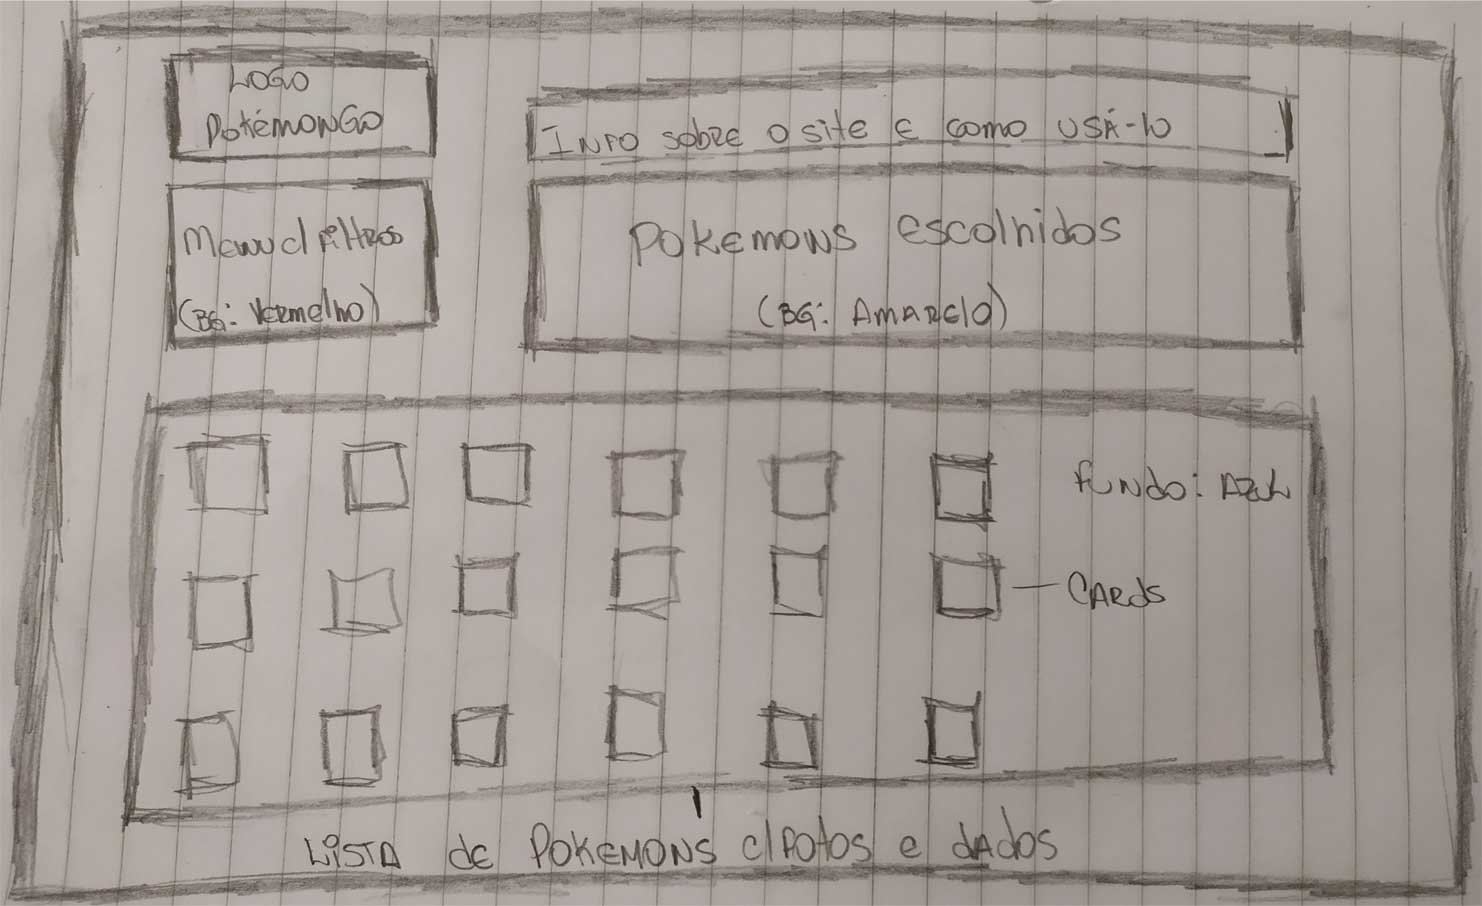 LOGO
PokémonGo
Info sobre o site e como usá-lo
Menu c/ filtros
(BG: Vermelho)
Pokemons escolhidos
(BG: Amarelo)
Fundo: Azul
Cards
Lista de Pokemons c/ fotos e dados